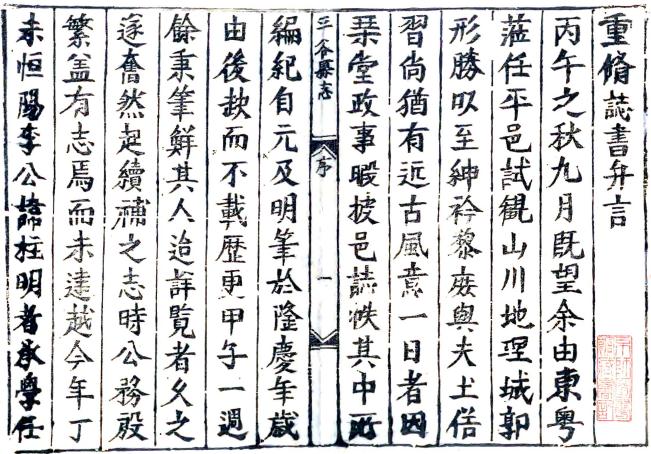 重脩誌書弁言
丙午之秋九月既望余由東粤
蒞任平邑試觀山川地理城郭
形勝以至紳衿黎庶與夫土俗
習尚猶有近古風意一日者因
琹堂政事暇披邑誌帙其中所
三谷縣志 序 一
編紀自元及明筆於隆慶年歲
由後欵而不載歷更甲子一週
餘秉筆鮮其人迨詳覧者久之
遂奮然起續補之志時公務殷
繁盖有志焉而未逮越今年丁
未恒陽李公諱柱明者承學任